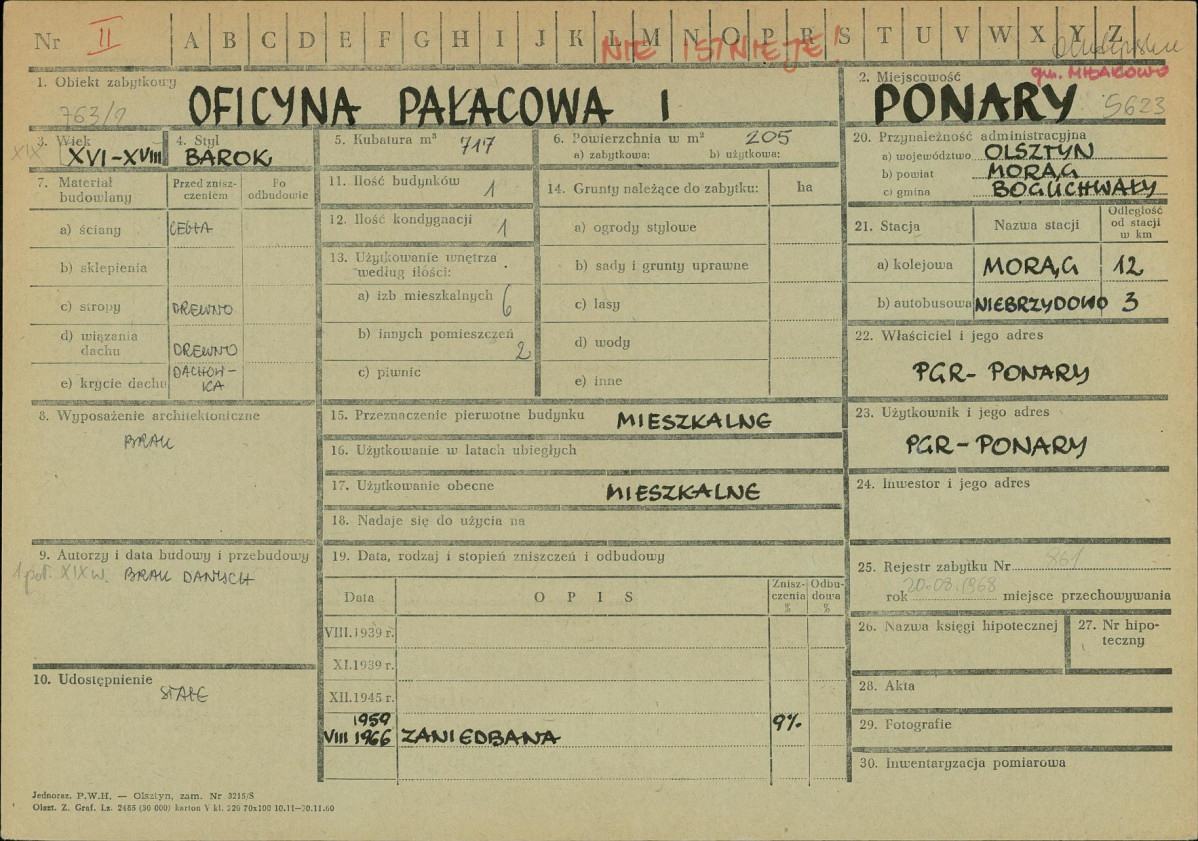 Nr II A B C D E F G H I J K L M N O P R S T U V W X Y Z
NIE ISTNIEJE!
gm. MIŁAKOWO
1. Obiekt zabytkowy
763/2
OFICYNA PAŁACOWA I
2. Miejscowość
PONARY 5623
3. Wiek
XIX XVI-XVIII
4. Styl
BAROK
5. Kubatura m³ 717
6. Powierzchnia w m² 205
a) zabytkowa: b) użytkowa:
7. Materiał budowlany
Przed zniszczeniem
Po odbudowie
a) ściany CEGŁA
b) sklepienia
c) stropy DREWNO
d) wiązania dachu DREWNO
e) krycie dachu DACHÓW-
KA
8. Wyposażenie architektoniczne
BRAK
9. Autorzy i data budowy i przebudowy
1 poł. XIX w. BRAK DANYCH
10. Udostępnienie
STAŁE
11. Ilość budynków 1
12. Ilość kondygnacji 1
13. Użytkowanie wnętrza
według ilości:
a) izb mieszkalnych 6
b) innych pomieszczeń 2
c) piwnic
14. Grunty należące do zabytku: ha
a) ogrody stylowe
b) sady i grunty uprawne
c) lasy
d) wody
e) inne
15. Przeznaczenie pierwotne budynku MIESZKALNE
16. Użytkowanie w latach ubiegłych
17. Użytkowanie obecne MIESZKALNE
18. Nadaje się do użycia na
19. Data, rodzaj i stopień zniszczeń i odbudowy
Data O P I S Zniszczenia % Odbudowa %
VIII.1939 r.
XI.1939 r.
XII.1945 r.
1959
VIII 1966 ZANIEDBANA 9%
20. Przynależność administracyjna
a) województwo OLSZTYN
b) powiat MORĄG
c) gmina BOGUCHWAŁY
21. Stacja Nazwa stacji Odległość od stacji w km
a) kolejowa MORĄG 12
b) autobusowa NIEBRZYDOWO 3
22. Właściciel i jego adres
PGR-PONARY
23. Użytkownik i jego adres
PGR-PONARY
24. Inwestor i jego adres
25. Rejestr zabytku Nr 861
rok 20.08.1968 miejsce przechowywania
26. Nazwa księgi hipotecznej
27. Nr hipo-
teczny
28. Akta
29. Fotografie
30. Inwentaryzacja pomiarowa
Jednoraz. P.W.H. — Olsztyn, zam. Nr 3215/S
Olszt. Z. Graf. Lz. 2485 (30 000) karton V kl. 220 70x100 10.11—30.11.60